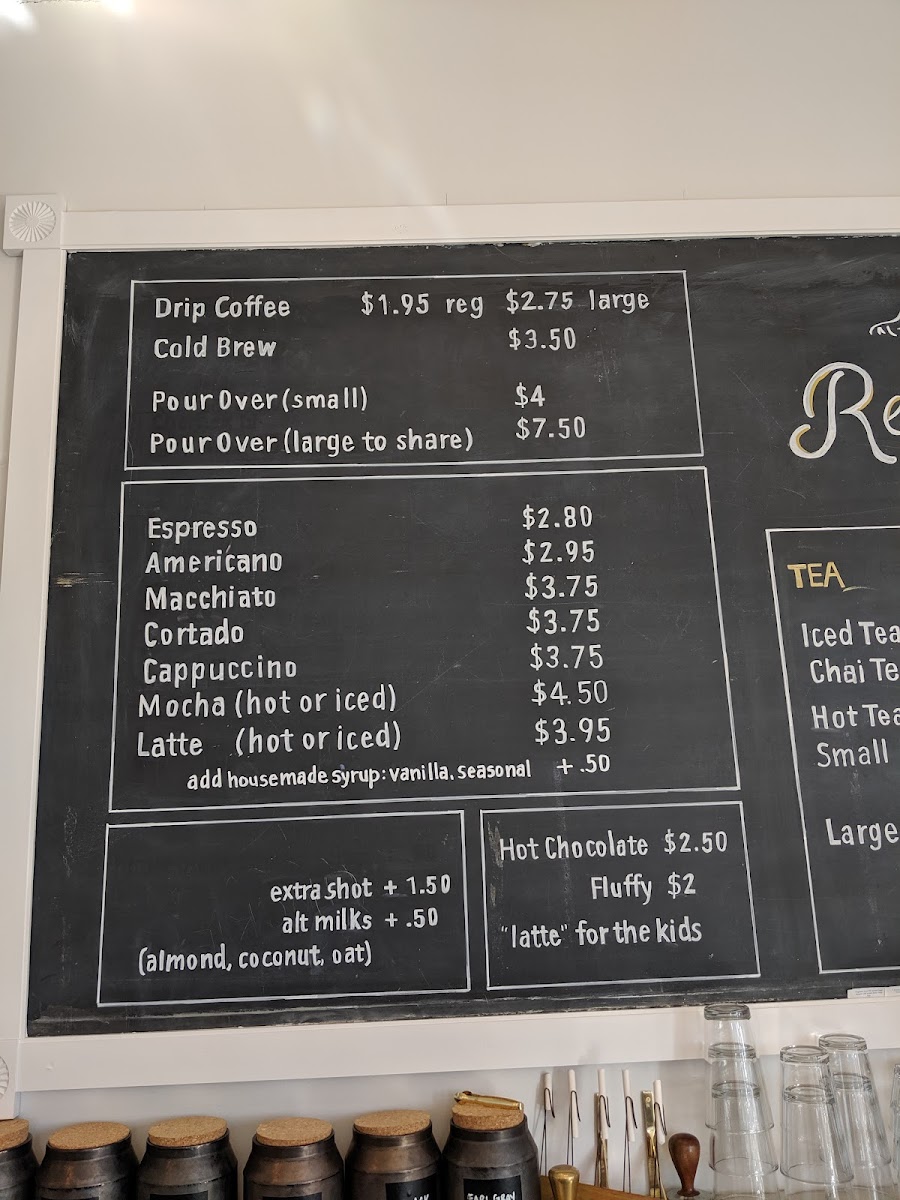 Drip Coffee $1.95 reg $2.75 large
Cold Brew $3.50
Pour Over (small) $4
Pour Over (large to share) $7.50
Espresso $2.80
Americano $2.95
Macchiato $3.75
Cortado $3.75
Cappuccino $3.75
Mocha (hot or iced) $4.50
Latte (hot or iced) $3.95
add housemade syrup: vanilla. seasonal + .50
extra shot + 1.50
alt milks + .50
(almond, coconut, oat)
Hot Chocolate $2.50
Fluffy $2
"latte" for the kids
Re
TEA
Iced Tea
Chai Te
Hot Tea
Small
Large
EARL GREY